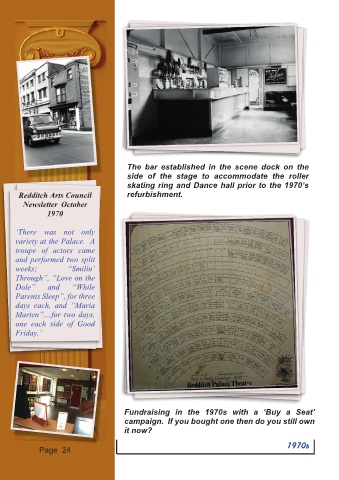 The bar established in the scene dock on the
side of the stage to accommodate the roller
skating ring and Dance hall prior to the 1970's
refurbishment.
Redditch Arts Council
Newsletter October
1970
'There was not only
variety at the Palace. A
troupe of actors came
and performed two split
weeks; "Smilin'
Through", "Love on the
Dole" and "While
Parents Sleep", for three
days each, and "Maria
Marten"...for two days,
one each side of Good
Friday.'
Redditch Palace Theatre
Fundraising in the 1970s with a 'Buy a Seat'
campaign. If you bought one then do you still own
it now?
Page 24
1970s